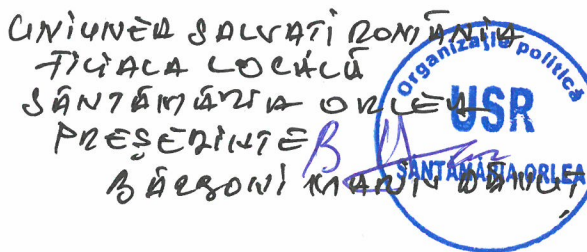 UNIUNEA SALVATI ROMÂNIA
FILIALA LOCALĂ
SÂNTĂMĂRIA ORLEA
PREȘEDINTE
BĂRBONI MARIN DĂNUȚ
Organizație politică
USR
SÂNTĂMĂRIA ORLEA